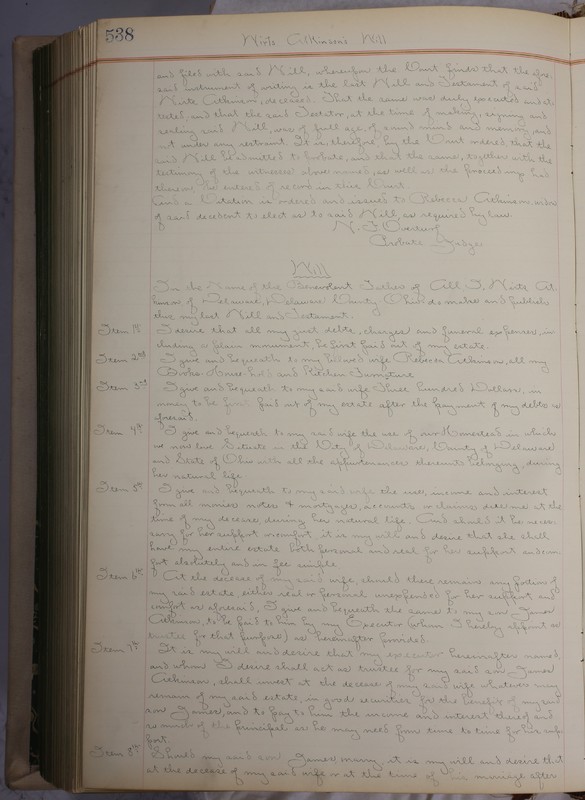 538
Wirts Atkinson's Will
and filed with said Will, wherefore the Court finds that the afore-
said instrument of writing is the last Will and Testament of said
Wirts Atkinson, deceased. That the same was duly executed and at-
tested, and that the said Testator, at the time of making, signing and
sealing said Will, was of full age, of sound mind and memory, and
not under any restraint. It is, therefore, by the Court ordered, that the
said Will be admitted to probate, and that the same, together with the
testimony of the witnesses above named, as well as the proceedings had
therein be entered of record in this Court.
And a Citation is ordered and issued to Rebecca Atkinson, widow
of said decedent to elect as to said Will, as required by law.
N. F. Overturf
Probate Judge
Will
In the Name of the Benevolent Father of All, I, Wirts At-
kinson of Delaware, Delaware County Ohio do make and publish
this my last Will and Testament.
Item 1st I desire that all my just debts, charges and funeral expenses, in-
cluding a plain monument, be first paid out of my estate.
Item 2nd I give and bequeath to my beloved wife Rebecca Atkinson, all my
Books, House hold and Kitchen Furniture
Item 3rd I give and bequeath to my said wife Three Hundred Dollars, in
money to be first paid out of my estate after the payment of my debts as
aforesaid.
Item 4th I give and bequeath to my said wife the use of our Homestead in which
we now live Situate in the City of Delaware, County of Delaware
and State of Ohio with all the appurtenances thereunto belonging, during
her natural life
Item 5th I give and bequeath to my said wife the use, income and interest
from all monies notes & mortgages, accounts or claims due me at the
time of my decease, during her natural life. And should it be neces-
sary for her support or comfort, it is my will and desire that she shall
have my entire estate both personal and real for her support and com-
fort absolutely and in fee simple
Item 6th At the decease of my said wife, should there remain any portion of
my said estate, either real or personal unexpended for her support and
comfort as aforesaid, I give and bequeath the same to my son James
Atkinson, to be paid to him by my Executor (whom I hereby appoint as
trustee for that purpose) as hereinafter provided.
Item 7th It is my will and desire that my executor hereinafter named,
and whom I desire shall act as trustee for my said son James
Atkinson, shall invest at the decease of my said wife whatever may
remain of my said estate, in good securities for the benefit of my said
son James, and to pay to him the income and interest thereof and
so much of the principal as he may need from time to time for his sup-
port.
Item 8th Should my said son James, marry, it is my will and desire that
at the decease of my said wife or at the time of his marriage after